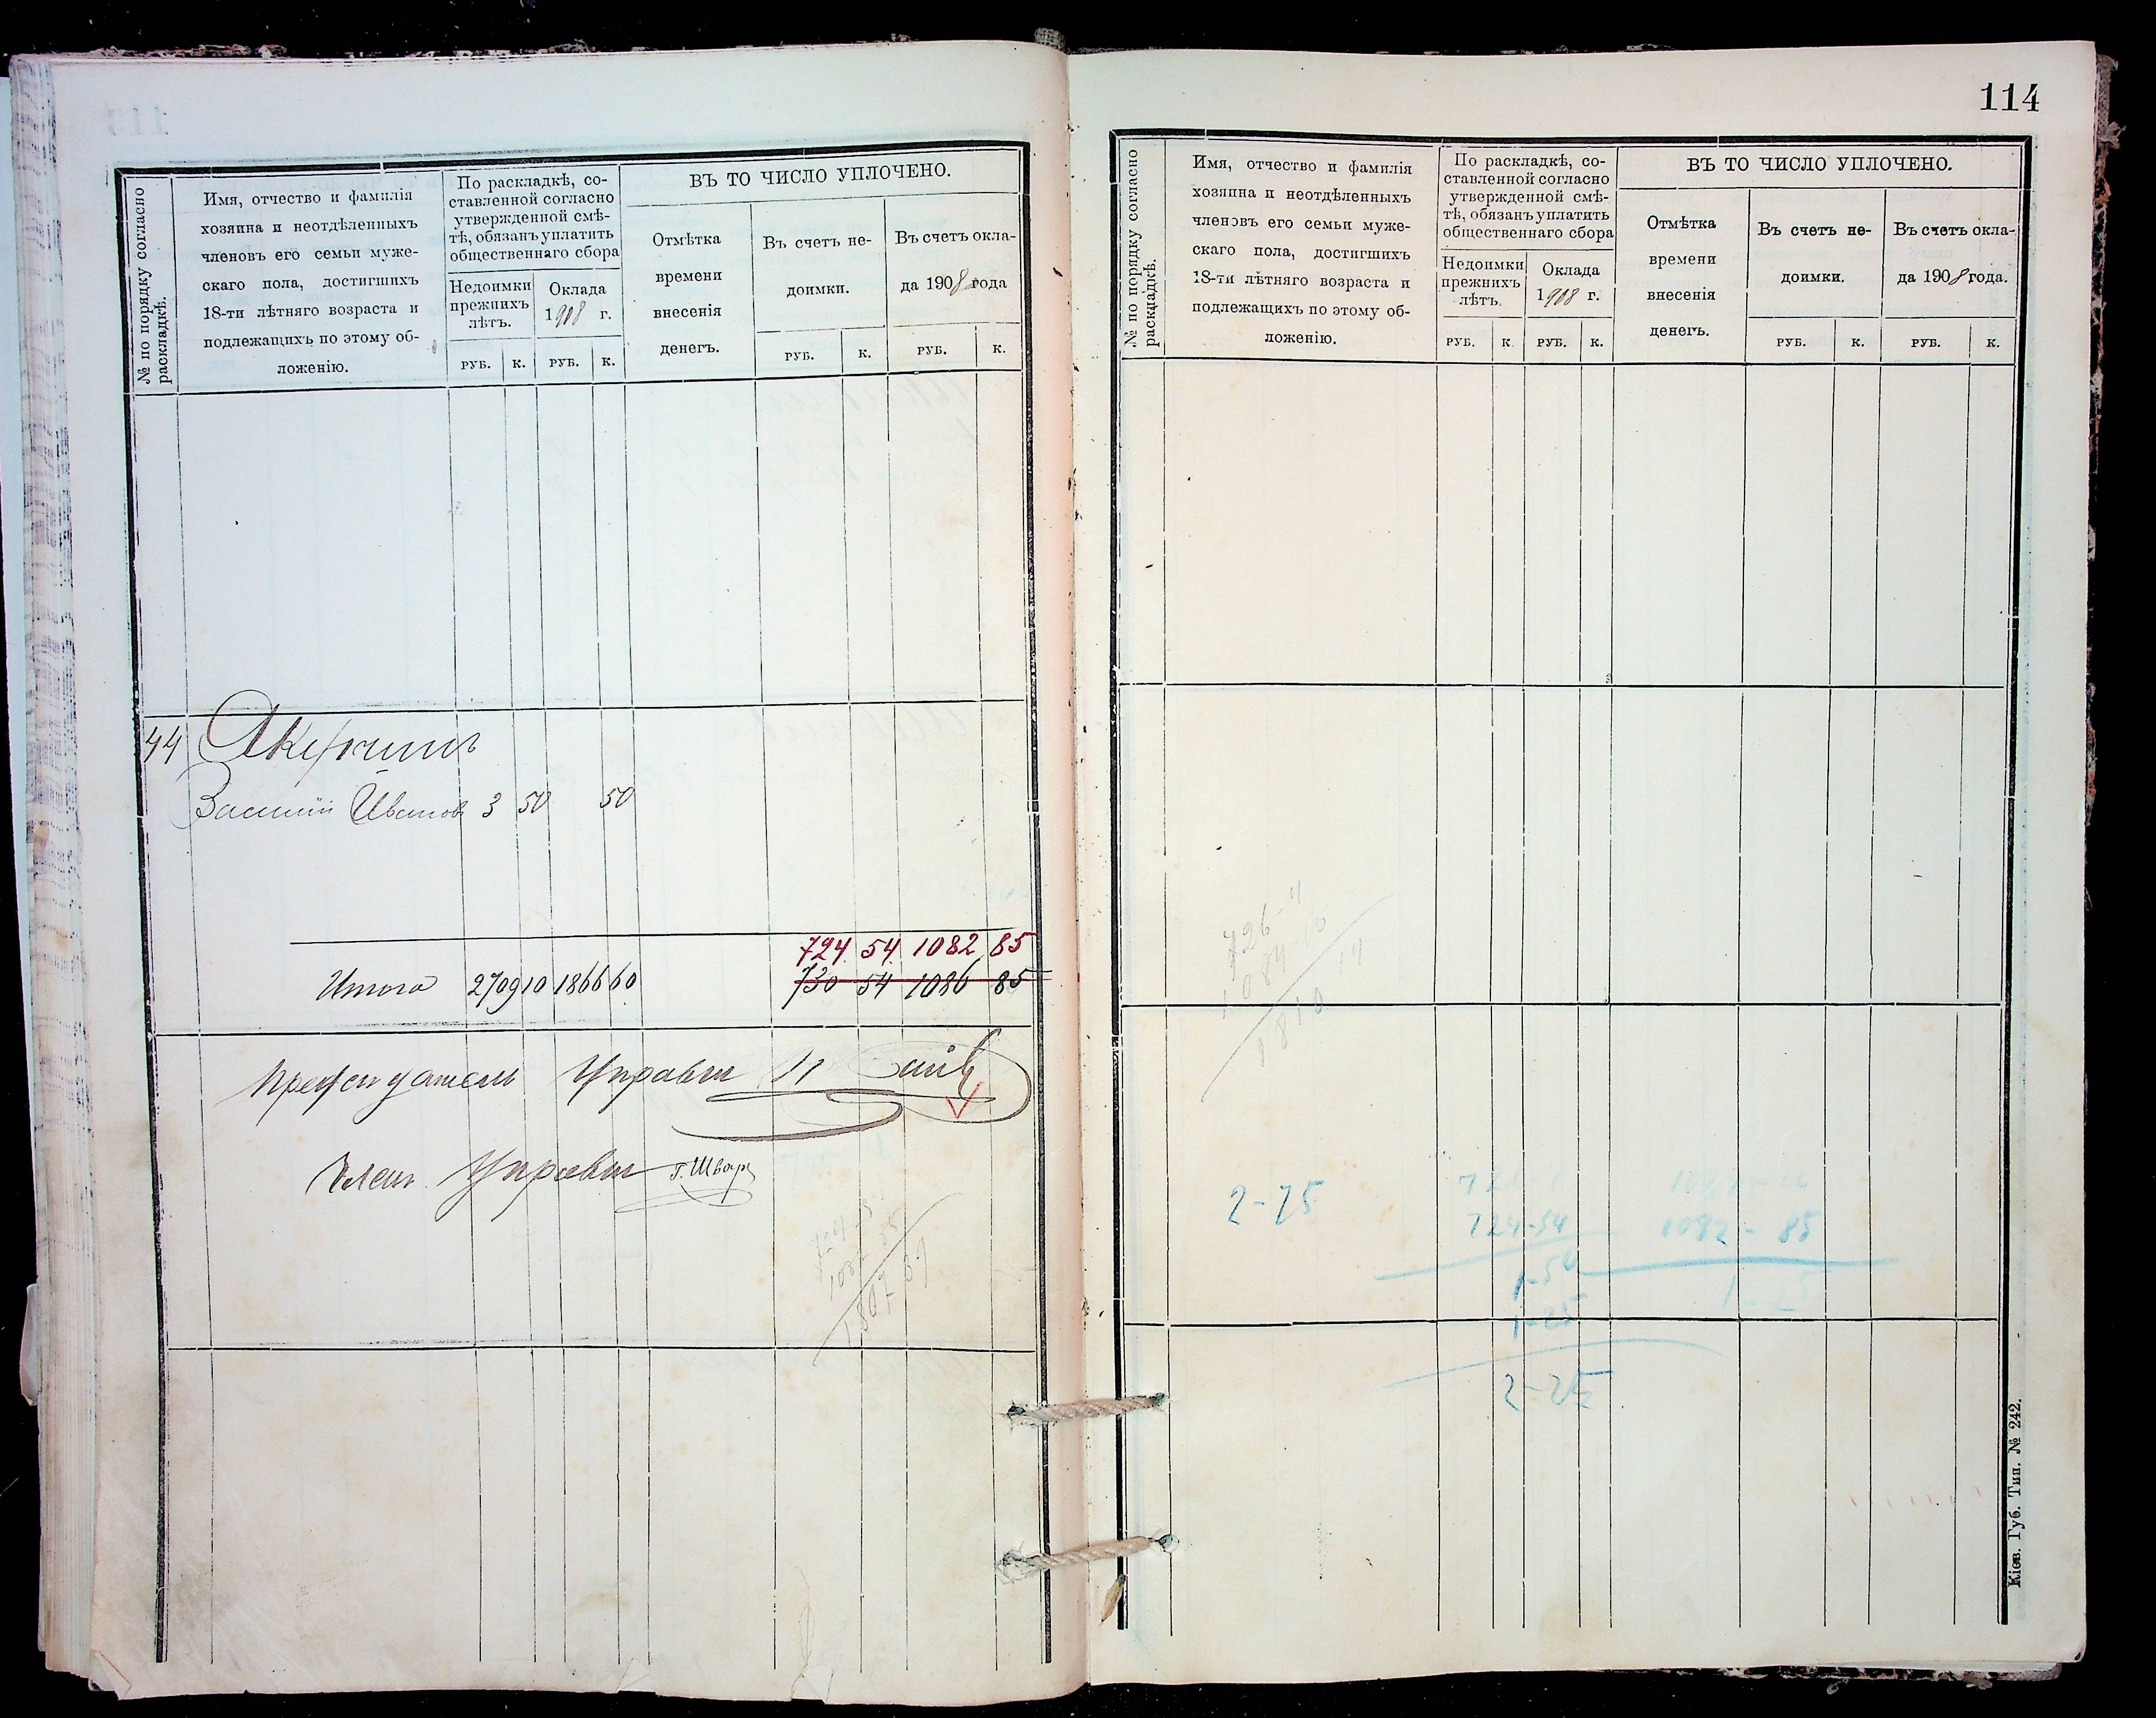 № по порядку согласно
раскладкѣ.
Имя, отчество и фамилія
хозяина и неотдѣленныхъ
членовъ его семьи муже-
скаго пола, достигшихъ
18-ти лѣтняго возраста и
подлежащихъ по этому об-
ложенію.
По раскладкѣ, со-
ставленной согласно
утвержденной смѣ-
тѣ, обязанъ уплатить
общественнаго сбора
Недоимки
прежнихъ
лѣтъ.
Оклада
1908 г.
РУБ. К. РУБ. К.
ВЪ ТО ЧИСЛО УПЛОЧЕНО.
Отмѣтка
времени
внесенія
денегъ.
Въ счетъ не-
доимки.
Въ счетъ окла-
да 1908 года
РУБ. К. РУБ. К.
44
Василій Иванов 3 50 50
724 54 1082 85
Итого 2709 10 1866 60 730 54 1086 85
Председатель Управы
Член Управы Г. Шварц
114
№ по порядку согласно
раскладкѣ.
Имя, отчество и фамилія
хозяина и неотдѣленныхъ
членовъ его семьи муже-
скаго пола, достигшихъ
18-ти лѣтняго возраста и
подлежащихъ по этому об-
ложенію.
По раскладкѣ, со-
ставленной согласно
утвержденной смѣ-
тѣ, обязанъ уплатить
общественнаго сбора
Недоимки
прежнихъ
лѣтъ.
Оклада
1908 г.
РУБ. К. РУБ. К.
ВЪ ТО ЧИСЛО УПЛОЧЕНО.
Отмѣтка
времени
внесенія
денегъ.
Въ счетъ не-
доимки.
Въ счетъ окла-
да 1908 года.
РУБ. К. РУБ. К.
726-4
1084-10
1810 14
2-75
724-54 1082-85
1-50
1-25
2-75
Кіев. Губ. Тип. № 242.